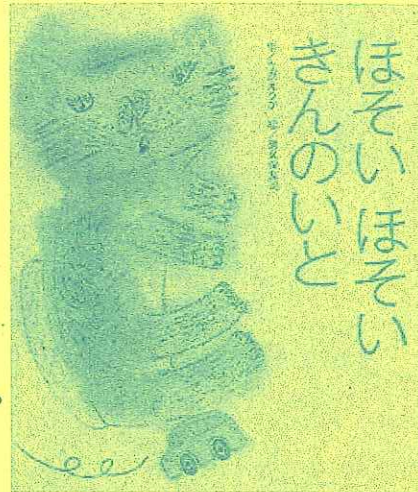 ほそい ほそい
きんのいと